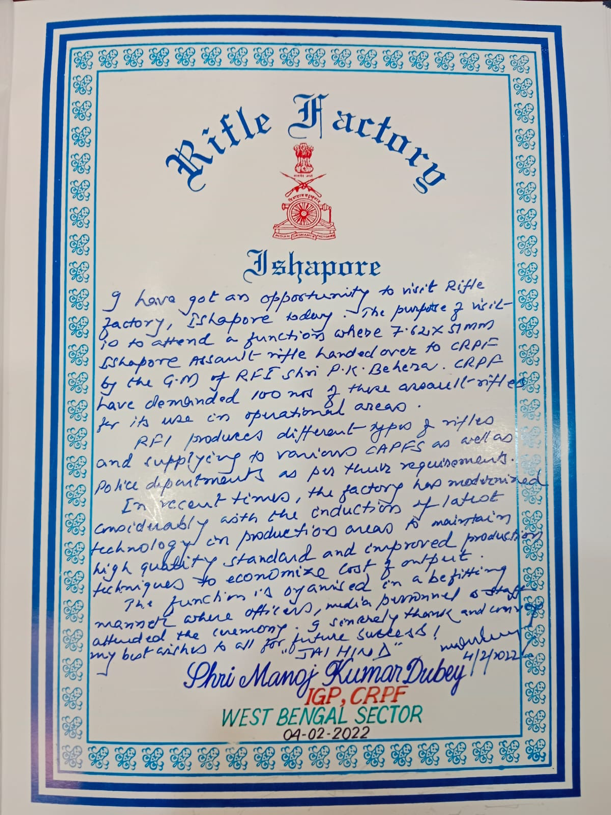 Rifle Factory
Ishapore
I have got an opportunity to visit Rifle
factory, Ishapore today. The purpose of visit
is to attend a function where 7.62x51mm
Ishapore Assault rifle handed over to CRPF
by the G.M of RFI Shri P.K. Behera. CRPF
have demanded 100 nos of these assault rifles
for its use in operational areas.
RFI produces different types of rifles
and supplying to various CAPFS as well as
Police departments as per their requirement.
In recent times, the factory has modernized
considerably with the induction of latest
technology in production areas to maintain
high quality standard and improved production
techniques to economize cost of output.
The function is organised in a befitting
manner where officers, media personnel & staff
attended the ceremony. I sincerely thank and convey
my best wishes to all for future success!
"JAI HIND"
4/2/2022
Shri Manoj Kumar Dubey
IGP, CRPF
WEST BENGAL SECTOR
04-02-2022